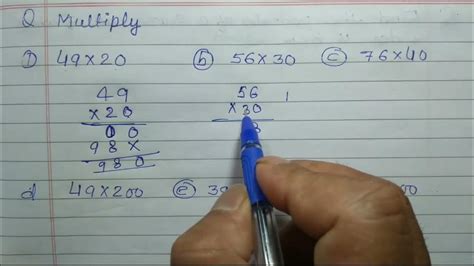 Q. Multiply
1) 49×20 (b) 56×30 (c) 76×40
49
×20
00
98×
980
56 1
×30
8
d 49×200 (e) 39 00